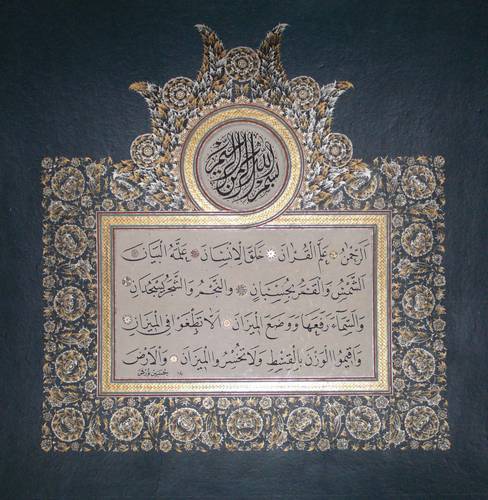 بسم الله الرحمن الرحيم
الرحمن علم القرآن خلق الإنسان علمه البيان
الشمس والقمر بحسبان والنجم والشجر يسجدان
والسماء رفعها ووضع الميزان ألا تطغوا في الميزان
وأقيموا الوزن بالقسط ولا تخسروا الميزان والأرض